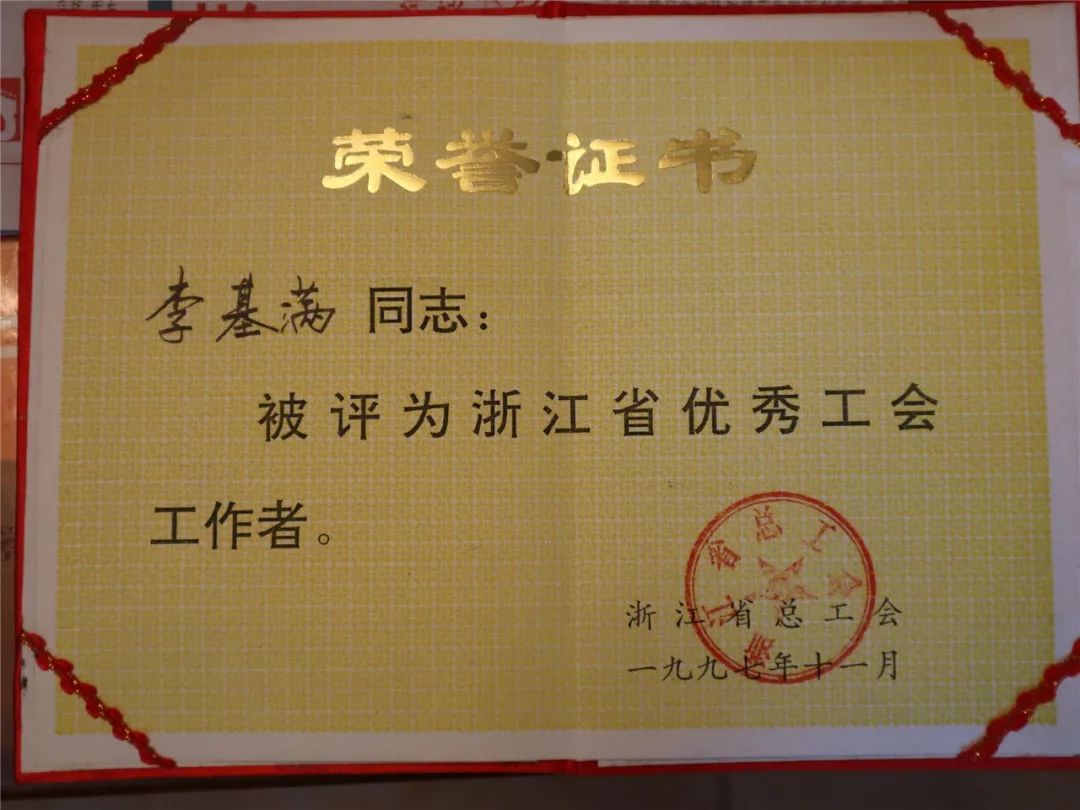 荣誉证书
李基满 同志：
被评为浙江省优秀工会
工作者。
浙江省总工会
浙江省总工会
一九九七年十一月